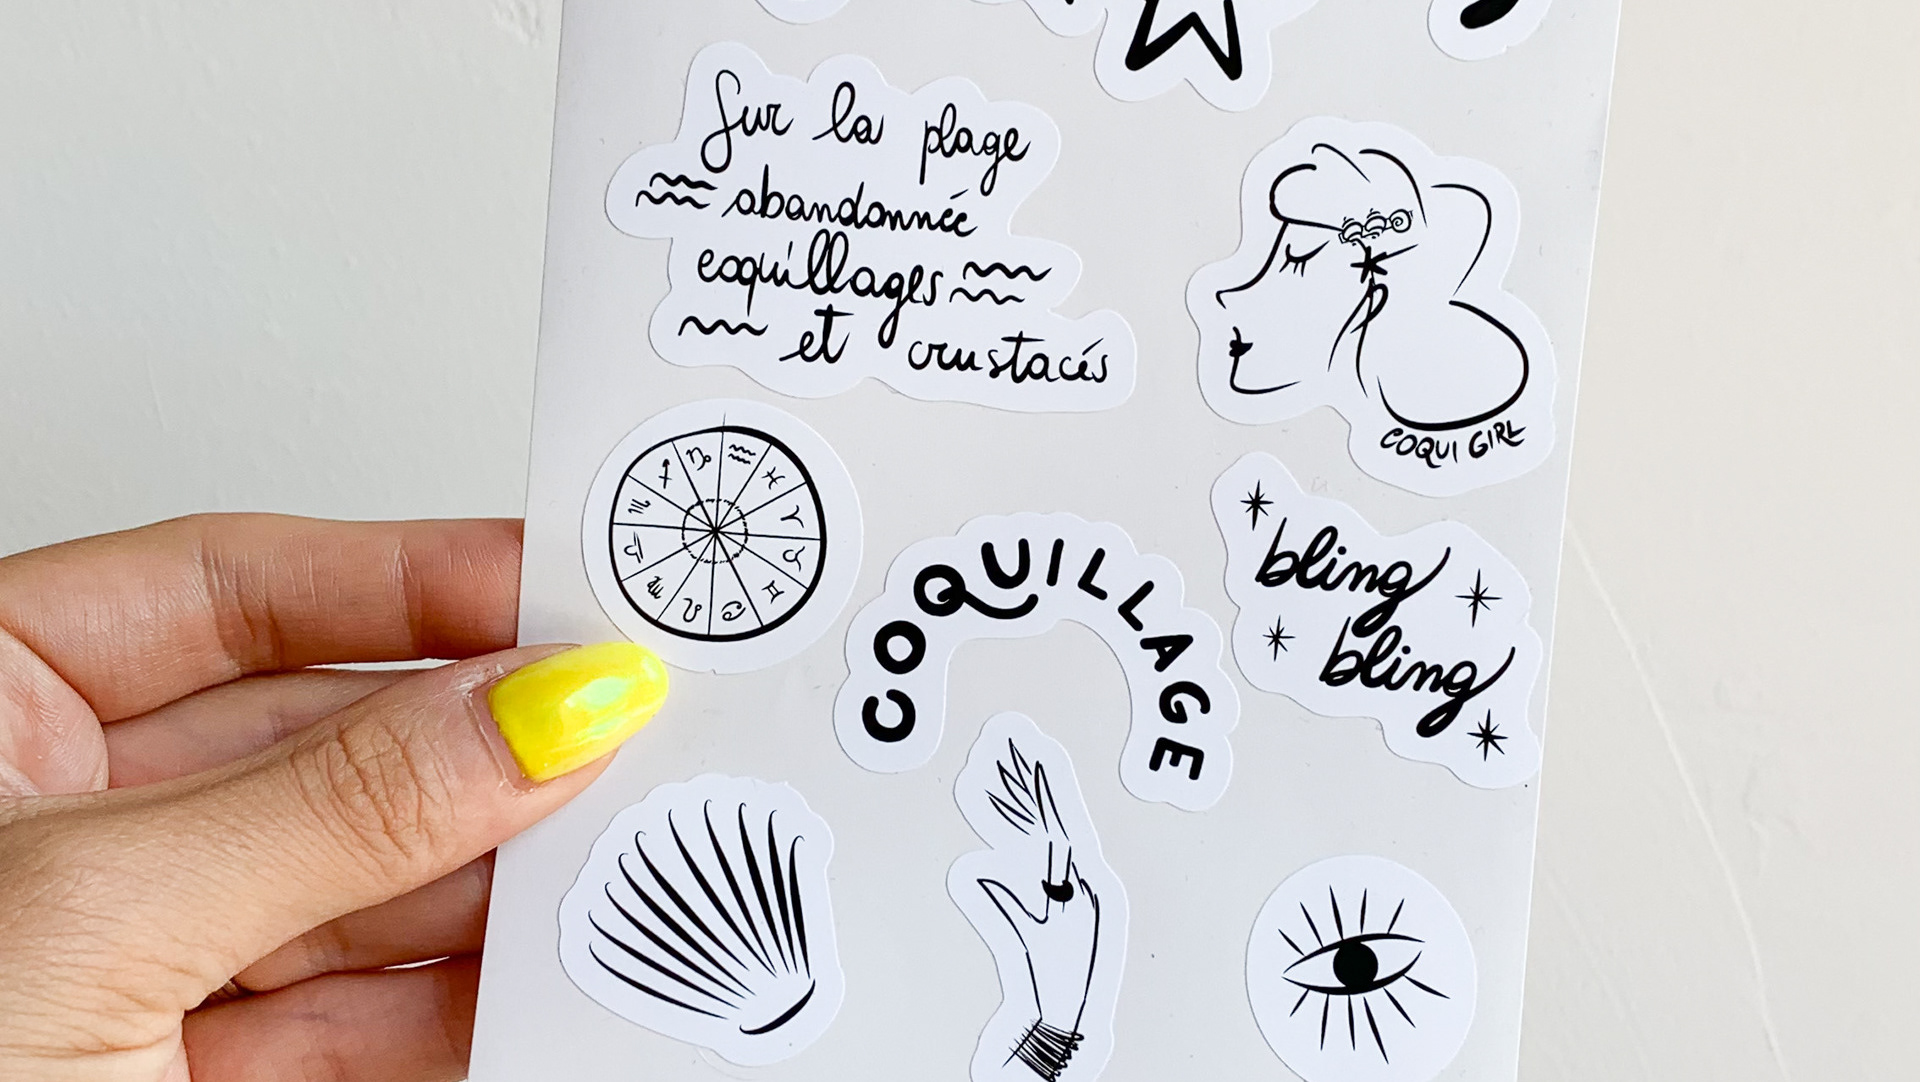 Sur la plage
abandonnée
coquillages
et crustacés
COQUI GIRL
COQUILLAGE
bling
bling